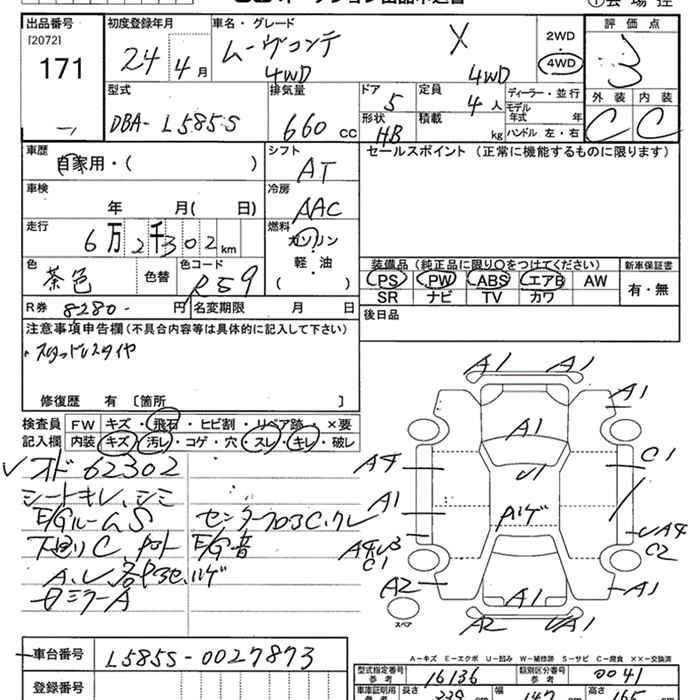 出品番号 初度登録年月 車名・グレード 評価点
[2072]
171
24年4月 ムーヴコンテ X 2WD
4WD 4WD 4WD
3
型式 排気量 ドア 定員 ディーラー・並行 外装 内装
DBA-L585S 660cc 5 4人 モデル年式 年
形状 積載 HB kg ハンドル 左・右 C C
車歴 シフト セールスポイント(正常に機能するものに限ります)
自家用・( ) AT
車検 冷房
年 月( 日) AAC
走行 燃料
6万2千302km ガソリン・軽・油
色 色コード 装備品(純正品に限り○をつけてください) 新車保証書
茶色 色替 R59 ( ) PS PW ABS エアB AW 有・無
SR ナビ TV カワ
R券 8280-円 名変期限 月 日 後日品
注意事項申告欄(不具合内容等は具体的に記入して下さい)
スタッドレスタイヤ
修復歴 有 [箇所 ]
検査員 FW キズ・飛石・ヒビ割・リペア跡・×要
記入欄 内装 キズ・汚レ・コゲ・穴・スレ・キレ・破レ
オド62302
シートキレ、シミ
E/GルームS センターフロアC、クレ
下廻りC E/G音
A、U各部
ミラーA
A1 A1
A1 A1
A4 U1 C1
A1 ハゲ
A4 C1 UA4 C2
A2 A1 A1
スペア A2 UA1
A-キズ E-エクボ U-凹み W-補修跡 S-サビ C-腐食 ××-交換済
車台番号 L585S-0027873
型式指定番号 参考 16136 類別区分番号 参考 0041
登録番号 車庫証明用 長さ 幅 147 高さ